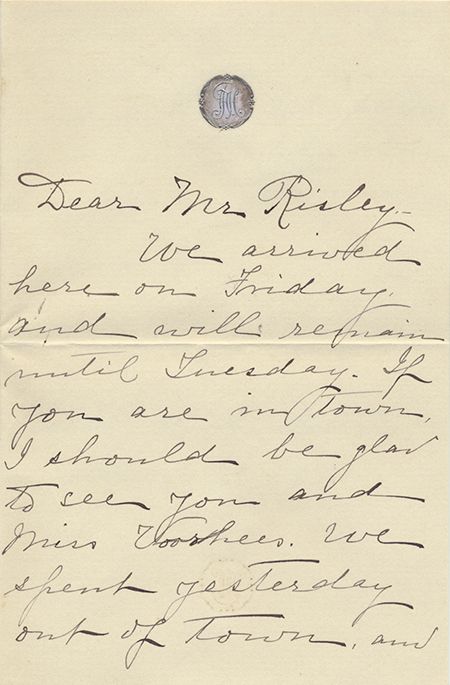 Dear Mr Risley.—
We arrived
here on Friday,
and will remain
until Tuesday. If
you are in town,
I should be glad
to see you and
Miss Voorhees. We
spent yesterday
out of town, and